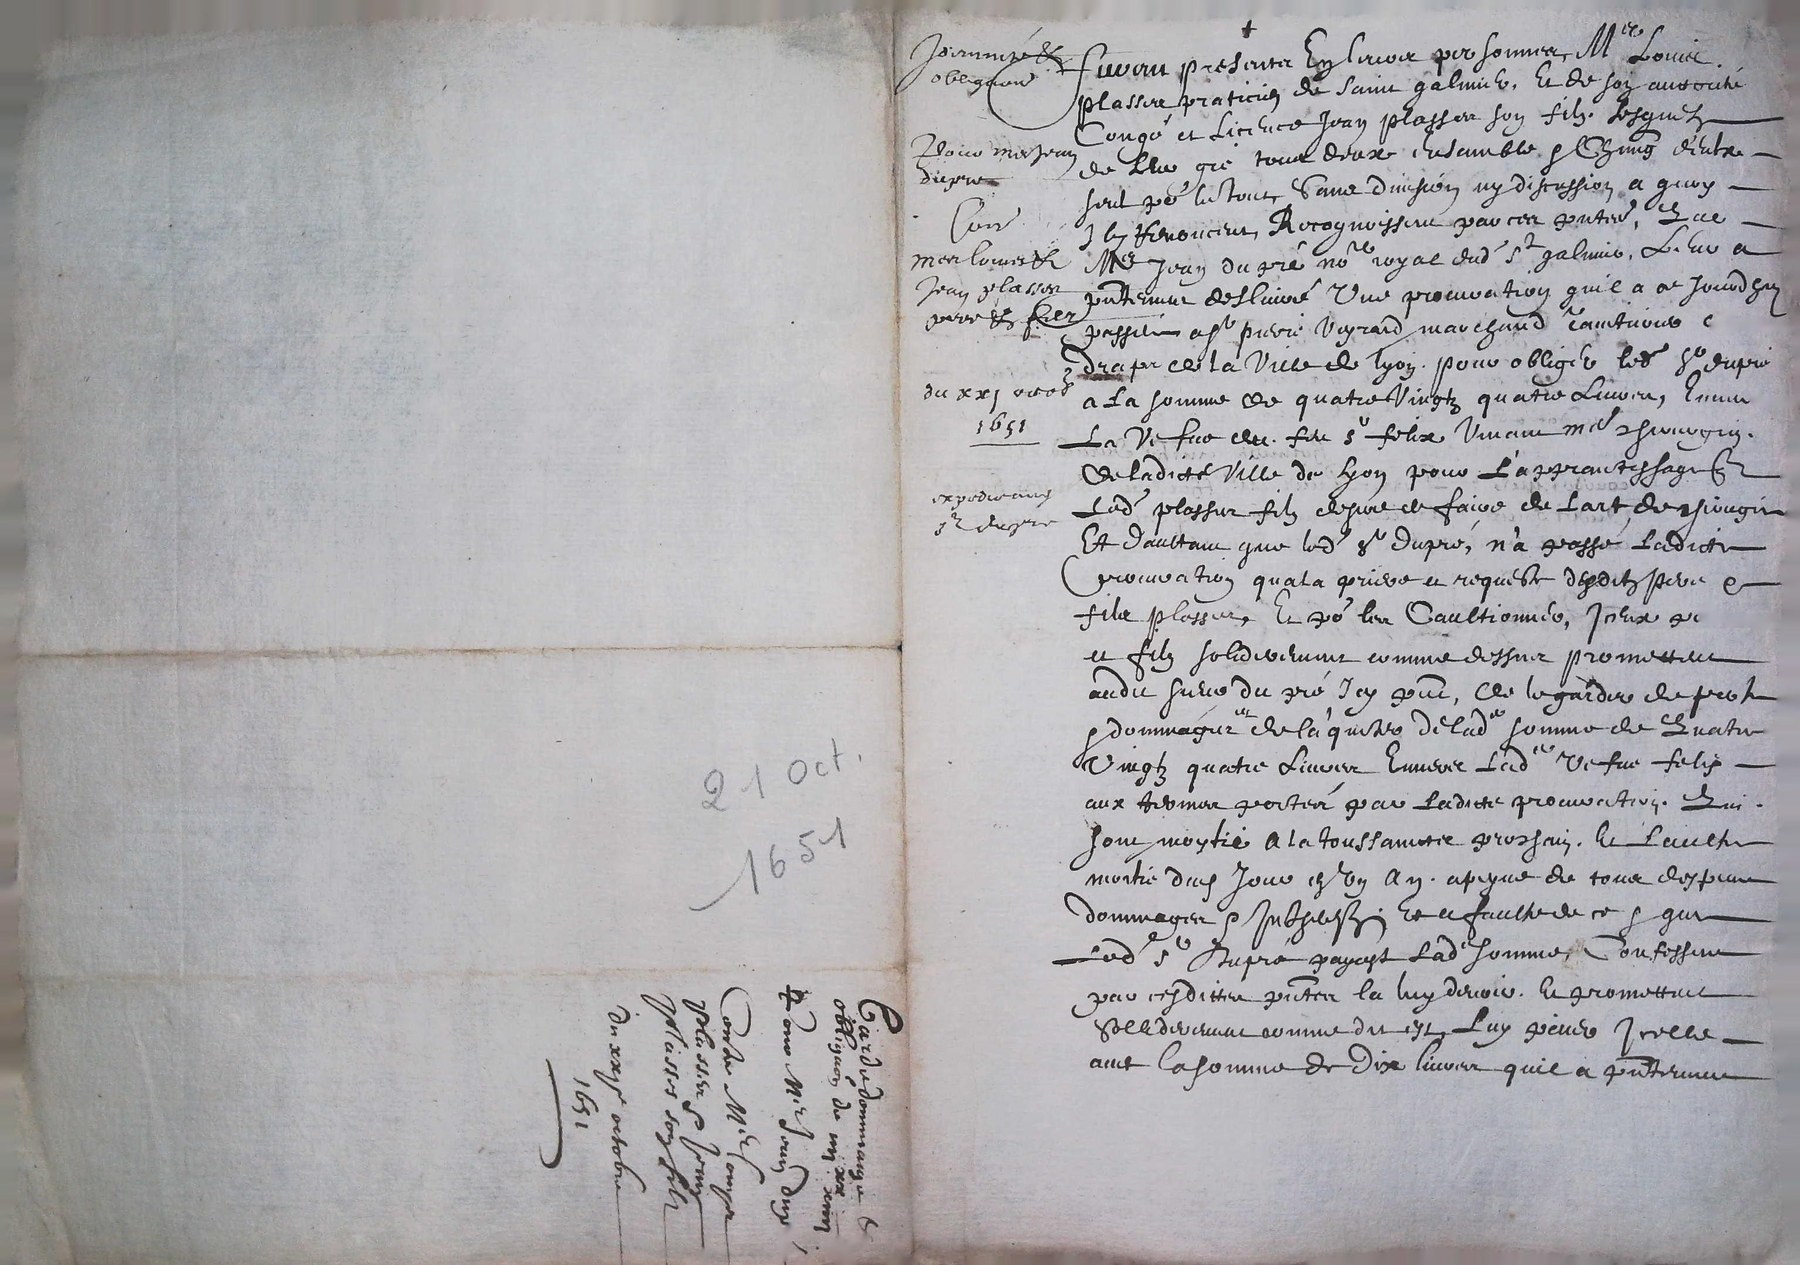 21 Oct.
1651
Garde dommaige &
obligaon de iiij xx iiij ll
Pour Me Jean Dupré
Contre Me Louys
plasser & Jean
plasser son filz
du xxj octobre
1651
Indemnité &
obligaon
Pour me Jean
dupre
Con
mes louis &
Jean plasser
pere & filz
du xxj octob
1651
expedié aud
sr dupre
Furent presentz En leurs personnes, Me Louis
plasser praticien de Saint galmier, Et de son authorité
Congé et licence Jean plasser son filz. Lesquelz
de leur gré tous deux ensemble & Chung d'eulx
seul po le tout, Sans division ny discussion a quoy
Ilz Renoncent, Recognoissent par ces pntes, Que
Me Jean du pré nore royal dud St galmier, Leur a
pntement deslivré Une procuration quil a ce Jourdhuy
passée a sr pierre Veyrard marchand
drapr de la Ville de Lyon. pour obliger led sr dupré
a La somme de quatre Vingtz quatre Livres, Envers
La Vefve de feu sr felix Vivant me chirurgien.
de ladicte Ville de Lyon pour L'apprantissage q
Led plasser filz desire de faire de Lart de chirurgie
Et Daultant que led sr Dupré, n'a passé Ladicte
procuration qua la priere et requeste desditz pere &
filz plasser, Et po les Caultionner, Iceux pe
et filz soliderement comme dessus promettent
audit sieur du pré Icy pnt, de le garder de perte
& dommages et de l'acquiter de lad somme de Quatre
Vingtz quatre Livres Envers Lad Vefve felix
aux termes portés par Ladicte procuration. Qui
sont moytié a la toussainctz prochain. Et Laultre
moitié dud Jour en Un An. a peyne de tous despens
dommages & Interestz. Et a faulte de ce & que
Led sr Dupré payast Lad somme, Confessent
par cesdittes pntes la luy devoir. Et promettent
Solliderement comme dit est, Luy payer Icelle
avec la somme de Dix livres quil a pntement